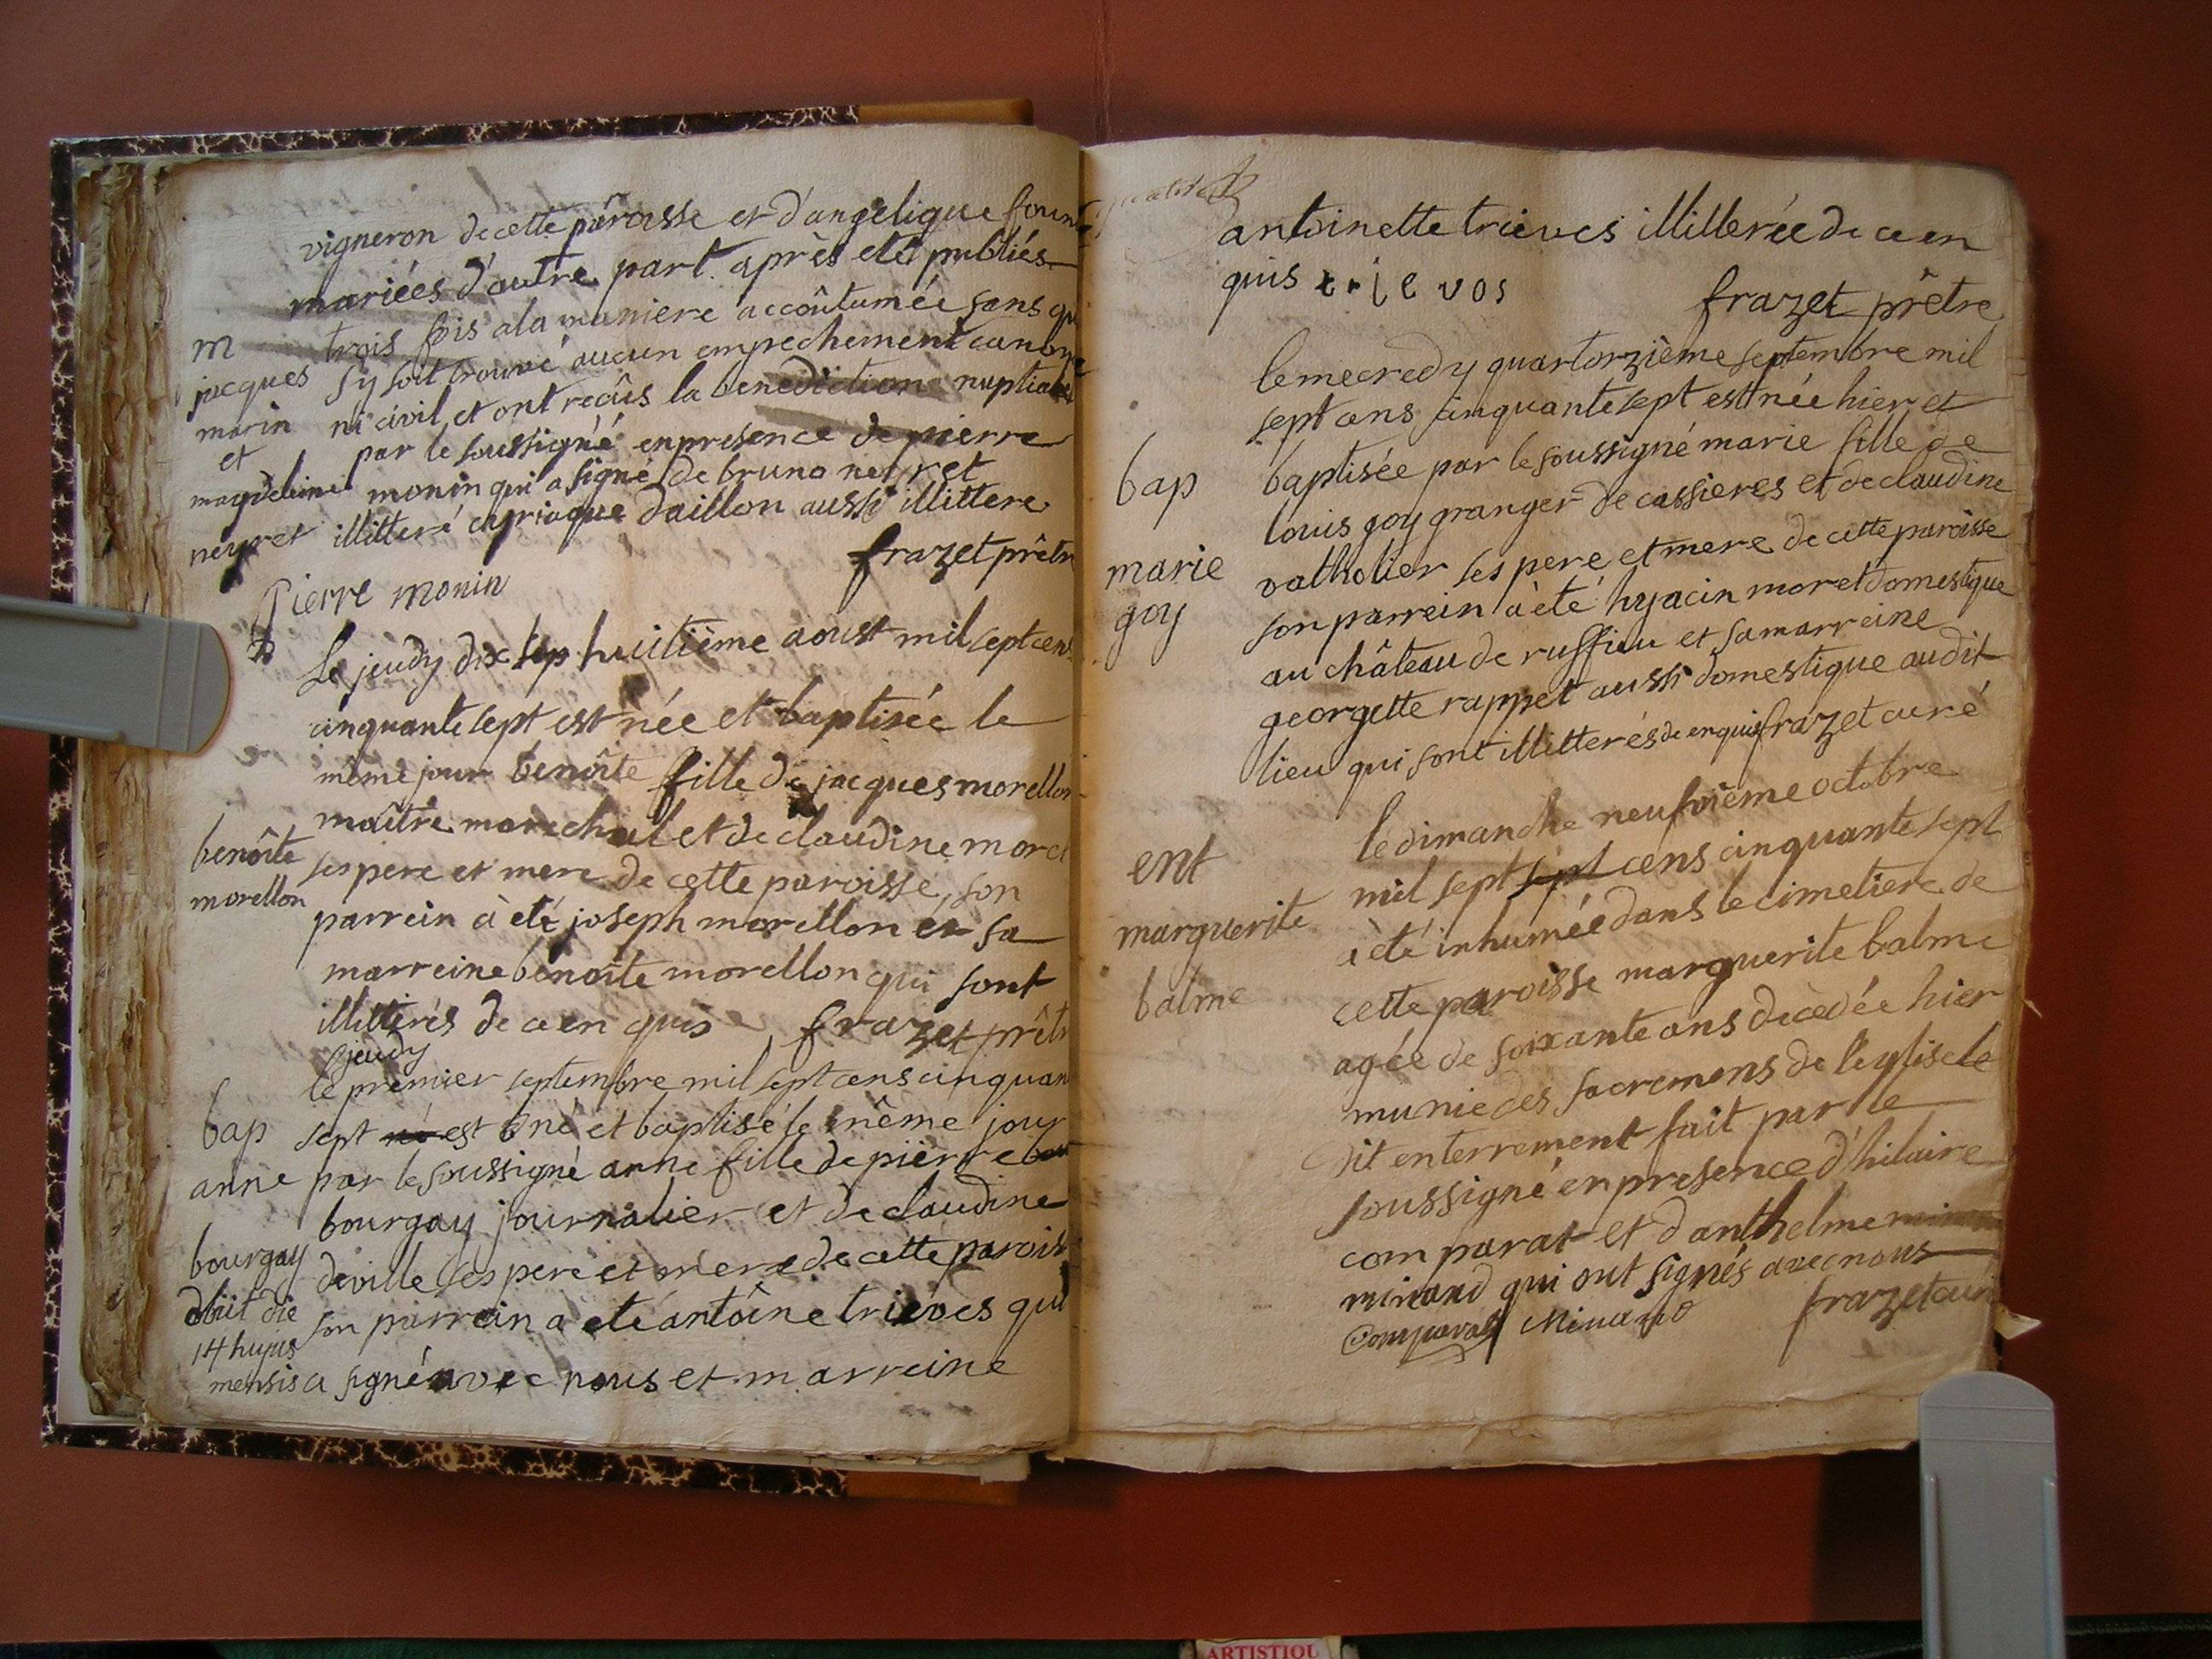 vigneron de cette pâroisse et d'angelique
mariées d'autre part. après eté publiés
trois fois a la maniere accoûtumée sans
m
jacques
marin
et
magdeleine
neyret
sy soit trouvé aucun empechement canoni
ni civil et ont reçûs la benediction nuptiale
par le soussigné en presence de pierre
monin qui a signé de bruno neyret
illitteré cyriaque daillon aussi illittere
frazet prêtr
Pierre monin
Le jeudy dix sep huitième aoust mil sept cens
cinquante sept est née et baptisée le
même jour benoîte fille de jacques morellon
maître marechal et de claudine moret
benoîte
morellon
ses pere et mere de cette paroisse, son
parrein à eté joseph morellon et sa
marreine benoîte morellon qui sont
illitterés de ce en quis frazet prêtr
jeudy
le premier septembre mil sept cens cinquan
bap
anne
bourgay
obiit die
14 hujus
mensis
sept né est né et baptisé le même jour
par le soussigné anne fille de pierre
bourgay journalier et de claudine
deville ses pere et mere de cette parois
son parrain a eté antoîne trièves qui
a signé avec nous et marreine
antoinette trieves illitterée de ce en
quis
frazet prêtre
le mecredy quartorzième septembre mil
sept cens cinquante sept est née hier et
bap
marie
goy
baptisée par le soussigné marie fille de
louis goy granger de cassieres et de claudine
vatholier ses pere et mere de cette paroisse
son parrein à eté hyacin moret domestique
au château de ruffieu et sa marreine
georgette rappet aussi domestique audit
lieu qui sont illitterés de enquis frazet curé
le dimanche neufvième octobre
ent
marguerite
balme
mil sept sept cens cinquante sept
à eté inhumée dans le cimetiere de
cette paroisse marguerite balme
agée de soixante ans decedée hier
munie des sacremens de l'eglise le
dit enterrement fait par le
soussigné en presence d'hilaire
comparat et d'anthelme
minand qui ont signés avec nous
Comparat Minand frazet curé
ARTISTIQU